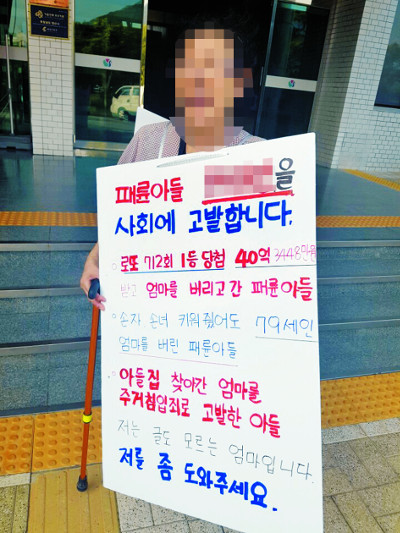 패륜아들 을
사회에 고발합니다.
로또 712회 1등 당첨 40억 3448만원
받고 엄마를 버리고 간 패륜아들
손자 손녀 키워줬어도 79세인
엄마를 버린 패륜아들
아들집 찾아간 엄마를
주거침입죄로 고발한 아들
저는 글도 모르는 엄마입니다.
저를 좀 도와주세요.